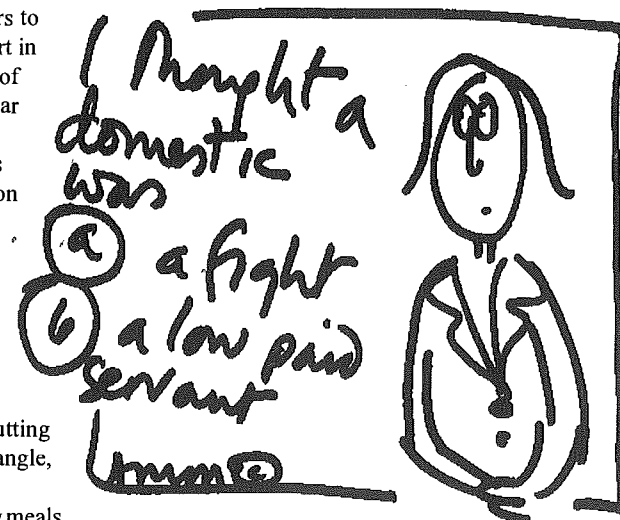 rs to
rt in
of
ar
s
on
utting
angle,
meals
I thought a
domestic
was
a a fight
b a low paid
servant